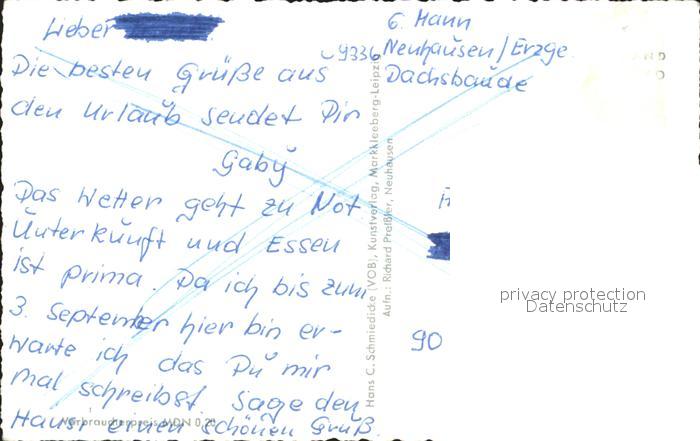 Lieber
Die besten Grüße aus
den Urlaub sendet Dir
Gaby
Das Wetter geht zu Not
Unterkunft und Essen
ist prima. Da ich bis zum
3. September hier bin er-
warte ich das Du mir
mal schreibst Sage den
Hausi einen schönen Gruß.
Verbraucherpreis MDN 0,20
Hans C. Schmiedicke (VOB), Kunstverlag, Markkleeberg-Leipzig
Aufn.: Richard Preißler, Neuhausen
G. Hann
9336
Neuhausen / Erzge.
Dachsbaude
90
privacy protection
Datenschutz